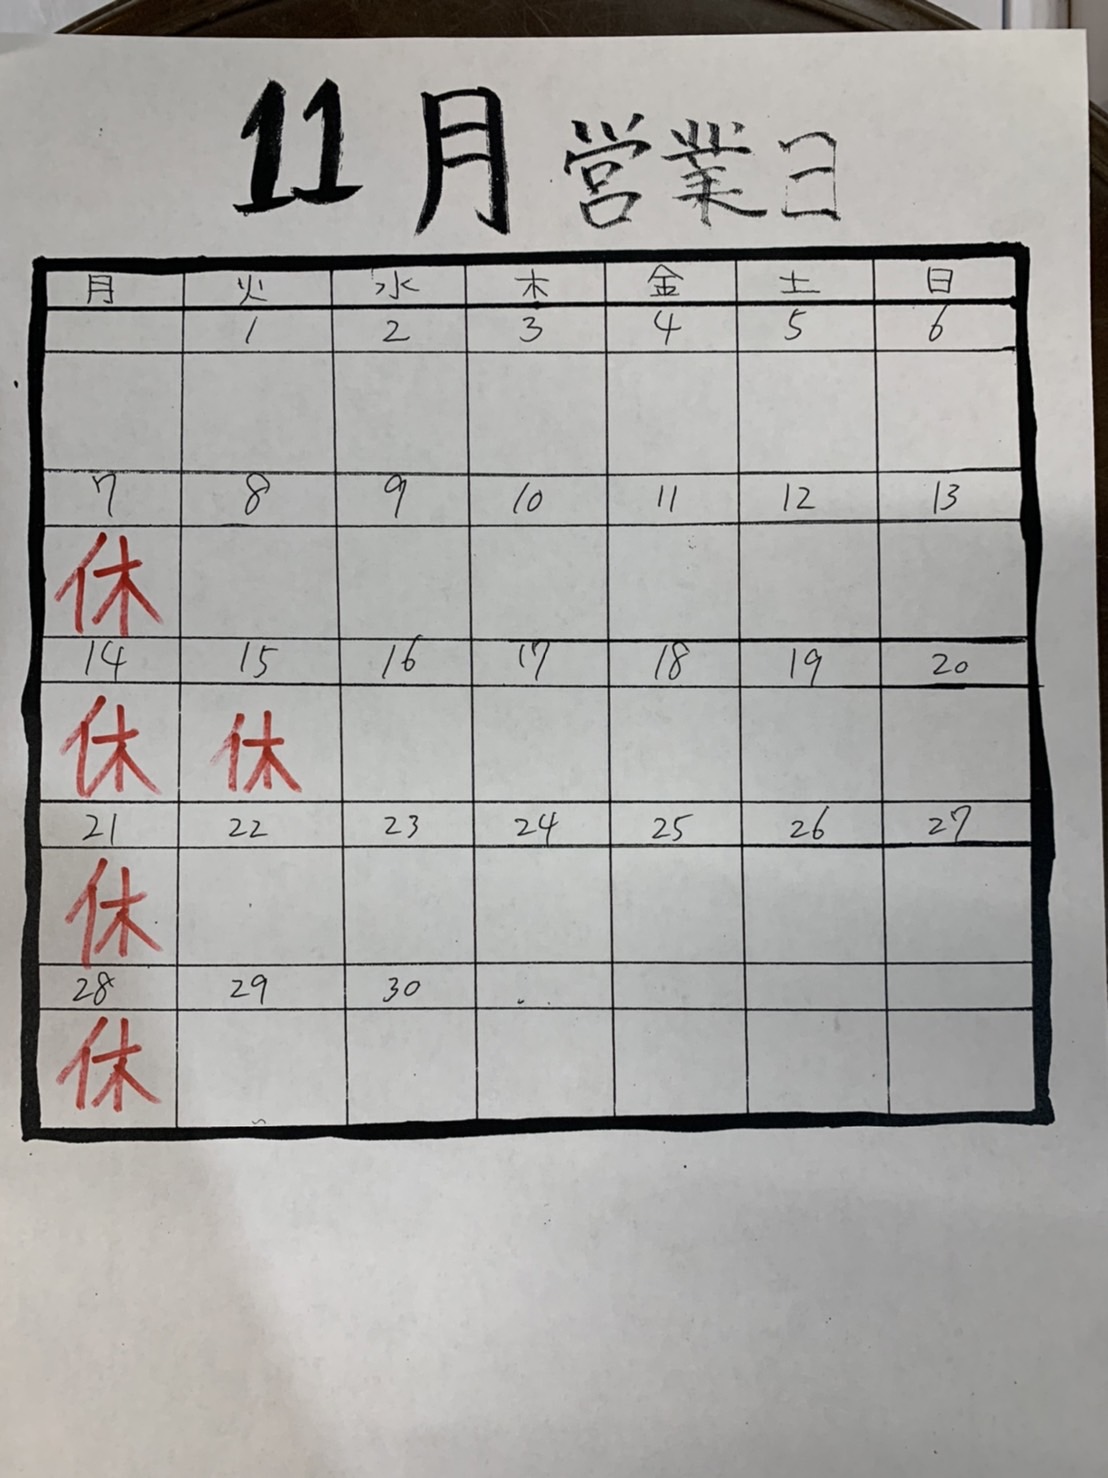 11月 営業日
月 火 水 木 金 土 日
1 2 3 4 5 6
7 8 9 10 11 12 13
休
14 15 16 17 18 19 20
休 休
21 22 23 24 25 26 27
休
28 29 30
休